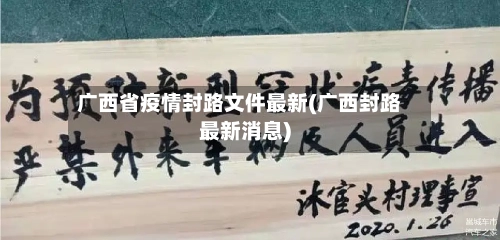 为预防新型冠状病毒传播
广西省疫情封路文件最新(广西封路
最新消息)
严禁外来车辆及人員进入
沐官头村理事宣
2020.1.26
汽车之家